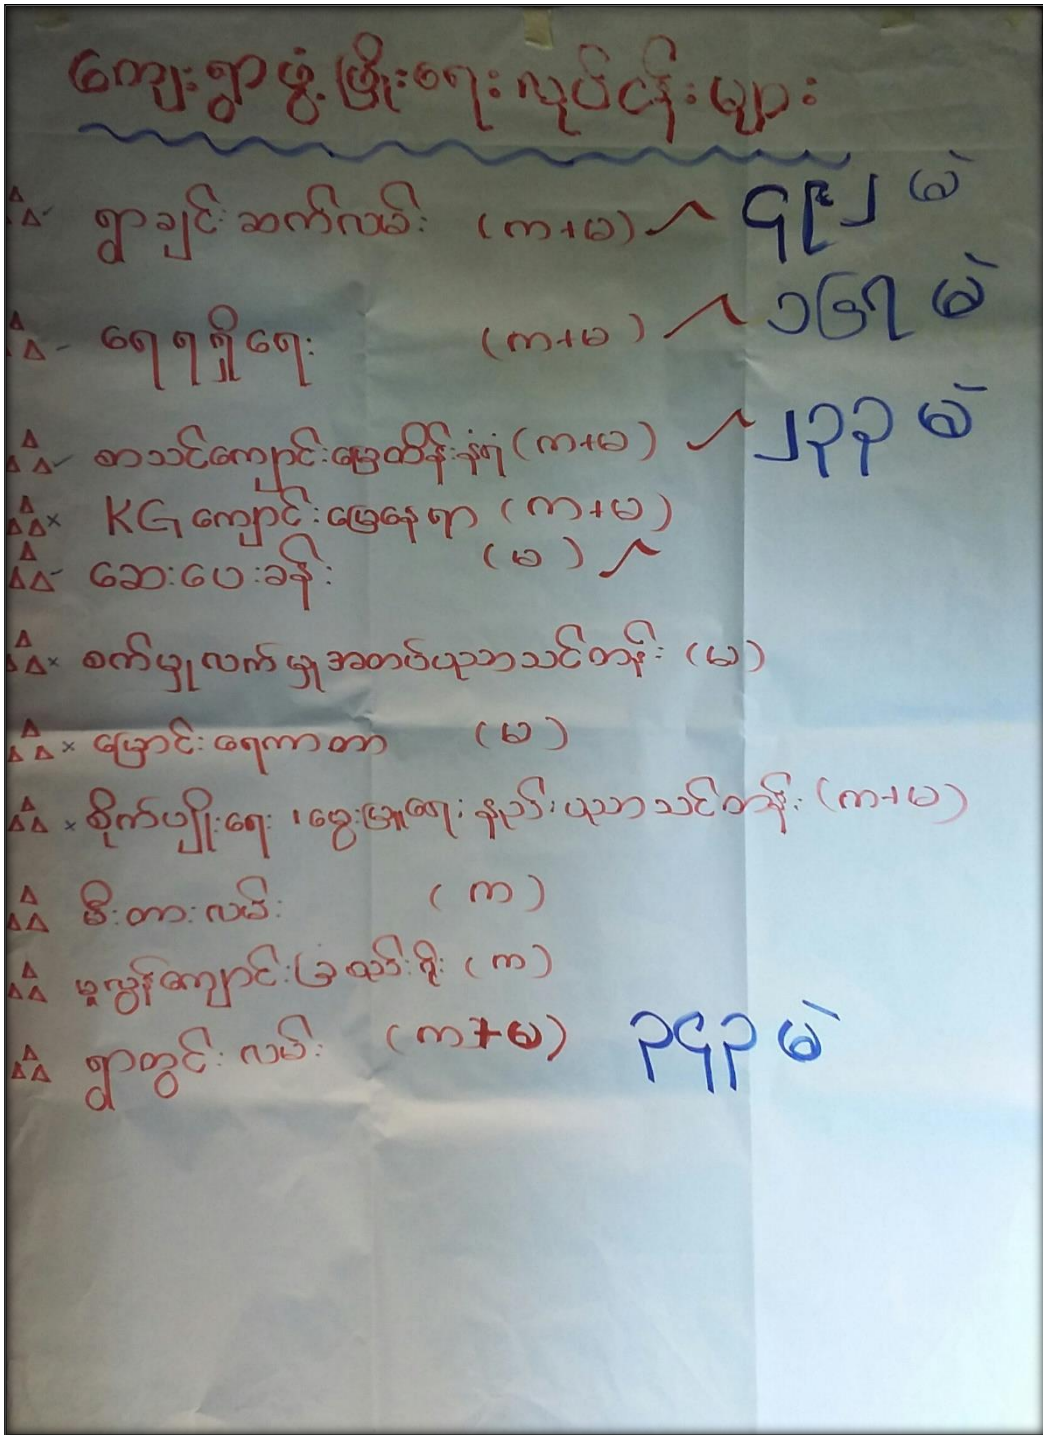 ကျေးရွာဖွံ့ဖြိုးရေးလုပ်ငန်းများ
ရွာချင်းဆက်လမ်း (က+မ) မဲ
ရေရရှိရေး (က+မ) ၁၆၅ မဲ
စာသင်ကျောင်းမြေထိန်းနံရံ (က+မ) ၂၃၃ မဲ
KG ကျောင်းမြေနေရာ (က+မ)
ဆေးပေးခန်း (မ)
စက်မှုလက်မှုအတတ်ပညာသင်တန်း (မ)
မြောင်းရေကာတာ (မ)
စိုက်ပျိုးရေး၊မွေးမြူရေးနည်းပညာသင်တန်း (က+မ)
မီးတားလမ်း (က)
မူလွန်ကျောင်းခြံစည်းရိုး (က)
ရွာတွင်းလမ်း (က+မ) ၃၄၃ မဲ